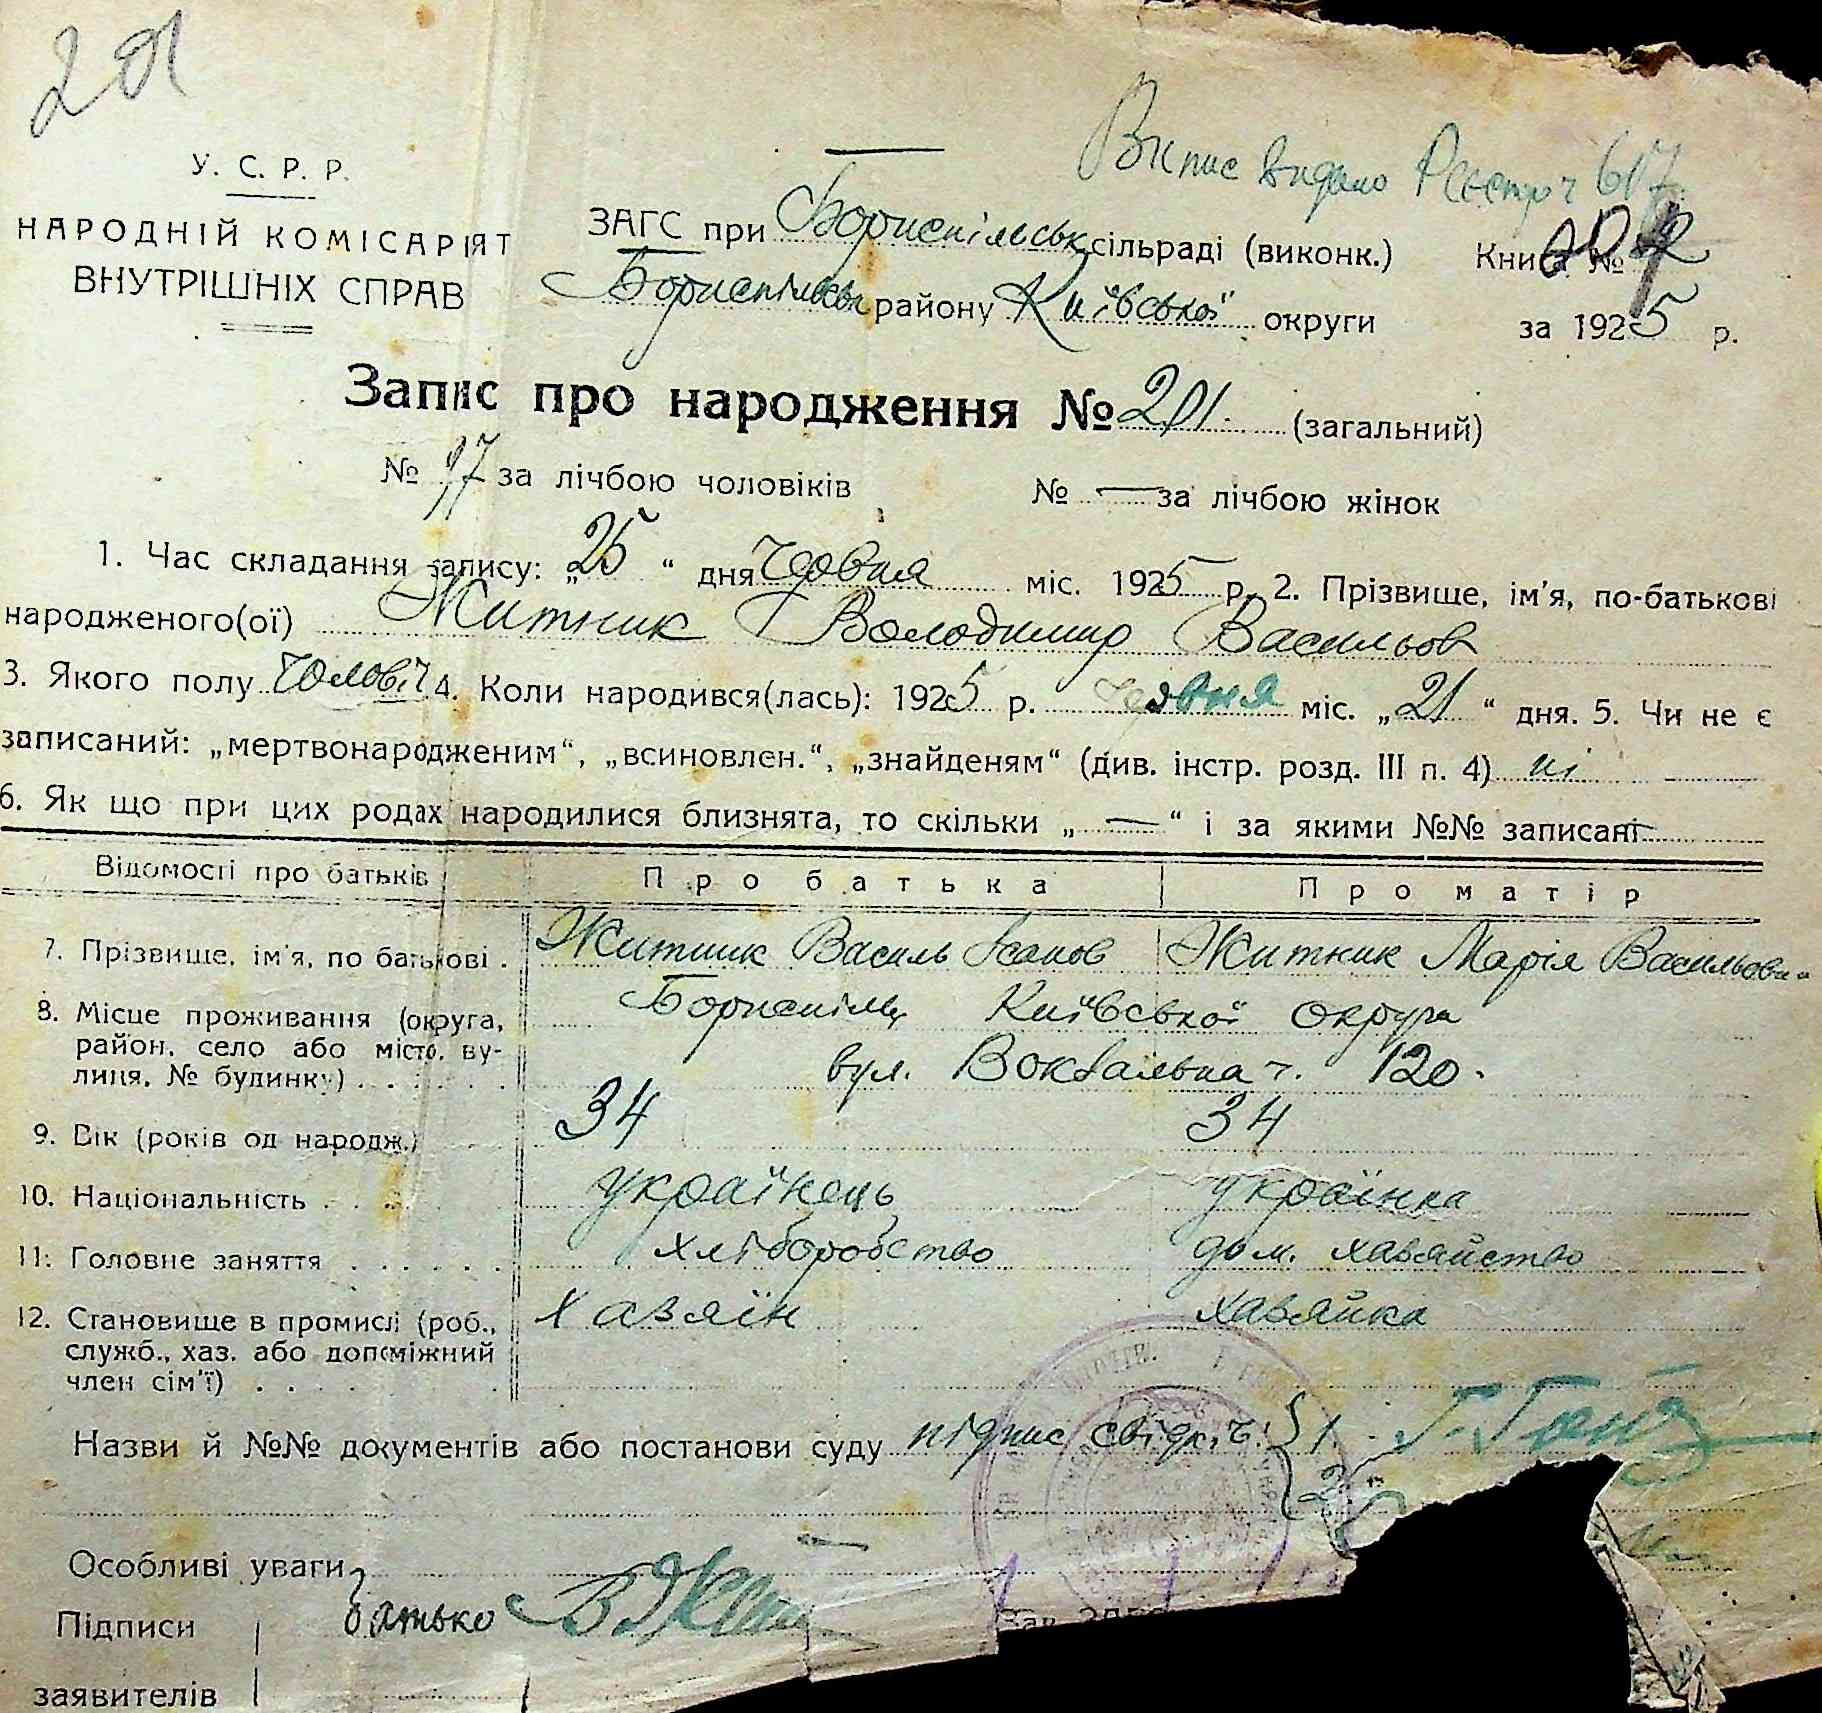 201
Випис видано Реєстр ч 617
У. С. Р. Р.
НАРОДНІЙ КОМІСАРІЯТ
ВНУТРІШНІХ СПРАВ
ЗАГС при Бориспільськ сільраді (виконк.) Книга №
Бориспільськ району Київської округи за 1925 р.
Запис про народження № 201. (загальний)
№ 97 за лічбою чоловіків № — за лічбою жінок
1. Час складання запису: „25“ дня Червня міс. 1925 р. 2. Прізвище, ім'я, по-батькові
народженого(ої) Житник Володимир Васильов
3. Якого полу чолович 4. Коли народився(лась): 1925 р. червня міс. „21“ дня. 5. Чи не є
записаний: „мертвонародженим“, „всиновлен.“, „знайденям“ (див. інстр. розд. III п. 4) ні
6. Як що при цих родах народилися близнята, то скільки „—“ і за якими №№ записані —
Відомості про батьків Про батька Про матір
7. Прізвище, ім'я, по батькові . Житник Василь Ісаков Житник Марія Васильовн
8. Місце проживання (округа, Бориспіль Київської округи
район, село або місто, ву-
лиця, № будинку) . . . . . . вул. Вокзальна ч. 120.
9. Вік (років од народж.) 34 34
10. Національність . . . . українець українка
11. Головне заняття . . . . . . хліборобство дом. хазяйство
12. Становище в промислі (роб., хазяїн хазяйка
служб., хаз. або допоміжний
член сім'ї) . . . .
Назви й №№ документів або постанови суду підпис свідк.ч. { 1.
2.
Особливі уваги
Підписи батько
заявителів